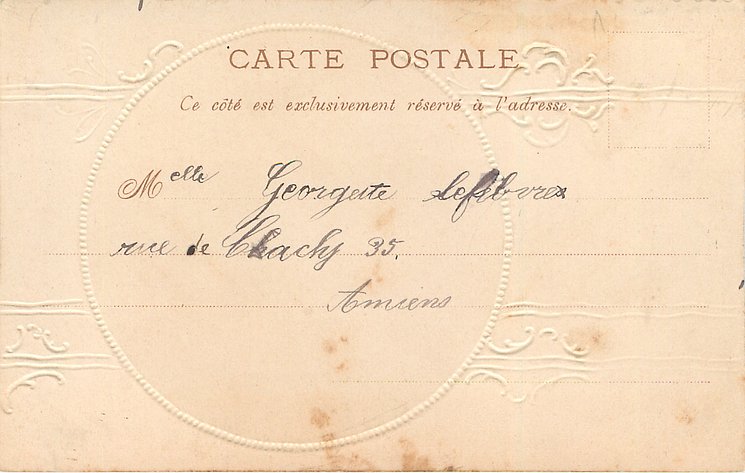 CARTE POSTALE
Ce côté est exclusivement réservé à l'adresse.
Melle Georgette Lefebvre
rue de Chachy 35.
Amiens